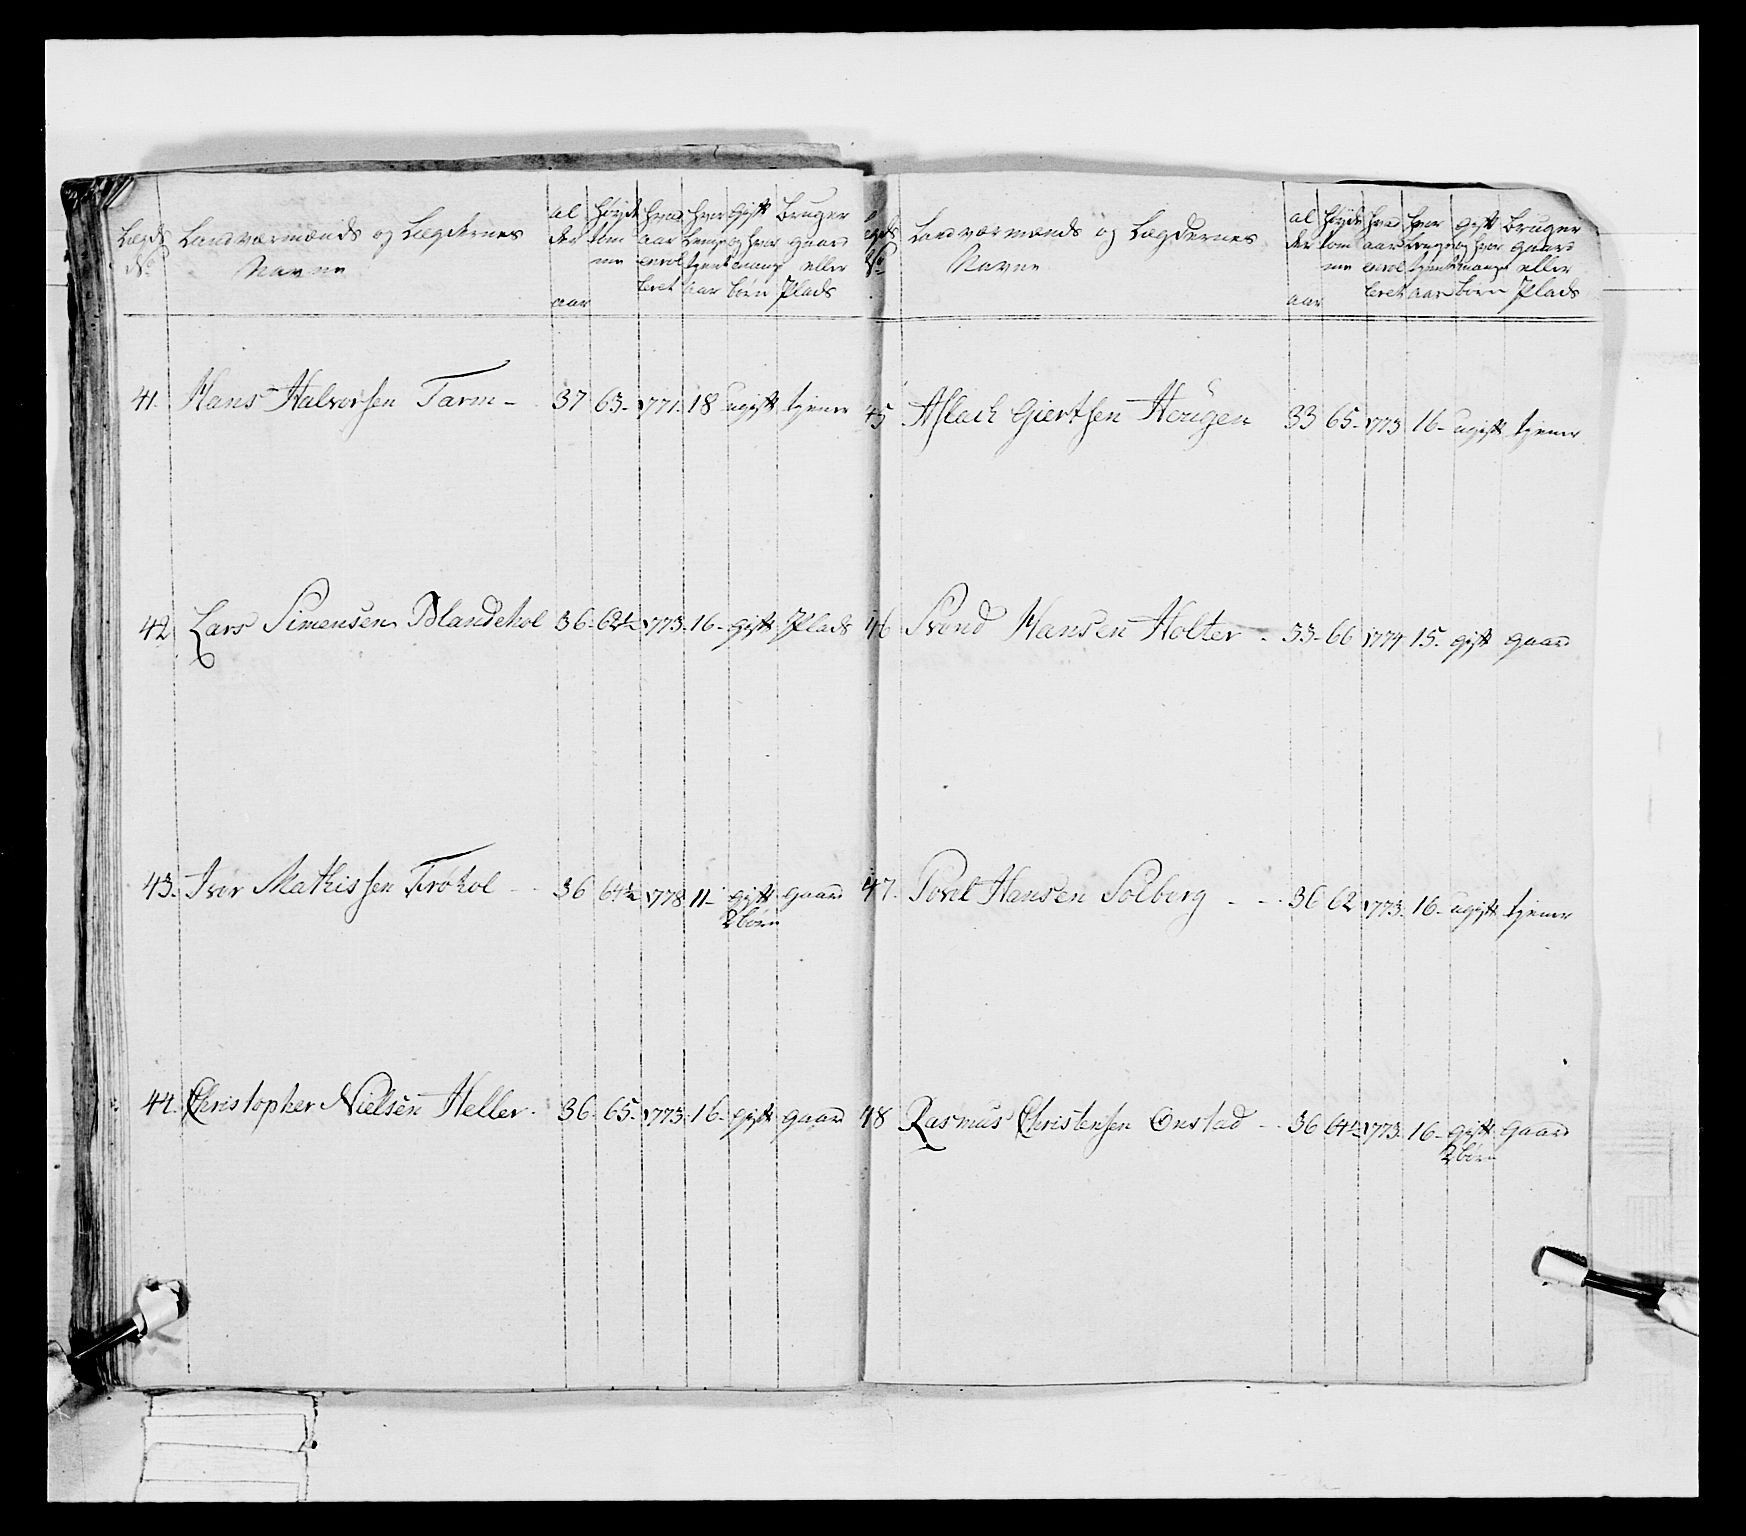 Lægds No Landværmænds og Lægdernes Navne al der aar høyde tom me hvad aar enrol leret hvor lenge tjent aar gift og hvor mange børn Bruger gaard eller Plads
41. Hans Halvorsen Tarm - 37 63- 1771. 18 ugift tjener
42 Lars Simensen Blandehol 36- 62½ 1773. 16- gift Plads
43. Iver Mathissen Frøhol - 36 64½ 1778 11- gift gaard
2 børn
44. Christopher Nielsen Heller. 36- 65- 1773. 16- gift gaard
Lægds No Landværmænds og Lægdernes Navne al der aar høyde tom me hvad aar enrol leret hvor lenge tjent aar gift og hvor mange børn Bruger gaard eller Plads
45 Aslach Giertsen Hougen 33 65- 1773 16- ugift tjener
46 Svend Hansen Holter - 33- 66 1774 15- gift gaard
47. Povel Hansen Solberg - - 36 62 1773. 16- ugift tjener
48 Rasmus Christensen Onstad - 36 64½ 1773. 16- gift Gaard
2 børn